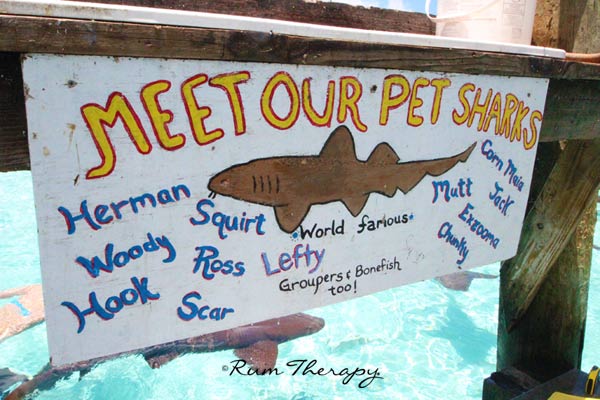 MEET OUR PET SHARKS
Herman
Squirt
Woody
Ross
Hook
Scar
Lefty
World famous
Groupers & Bonefish
too!
Corn Maia
Mutt
Jack
Enzooma
Chunky
©Rum Therapy